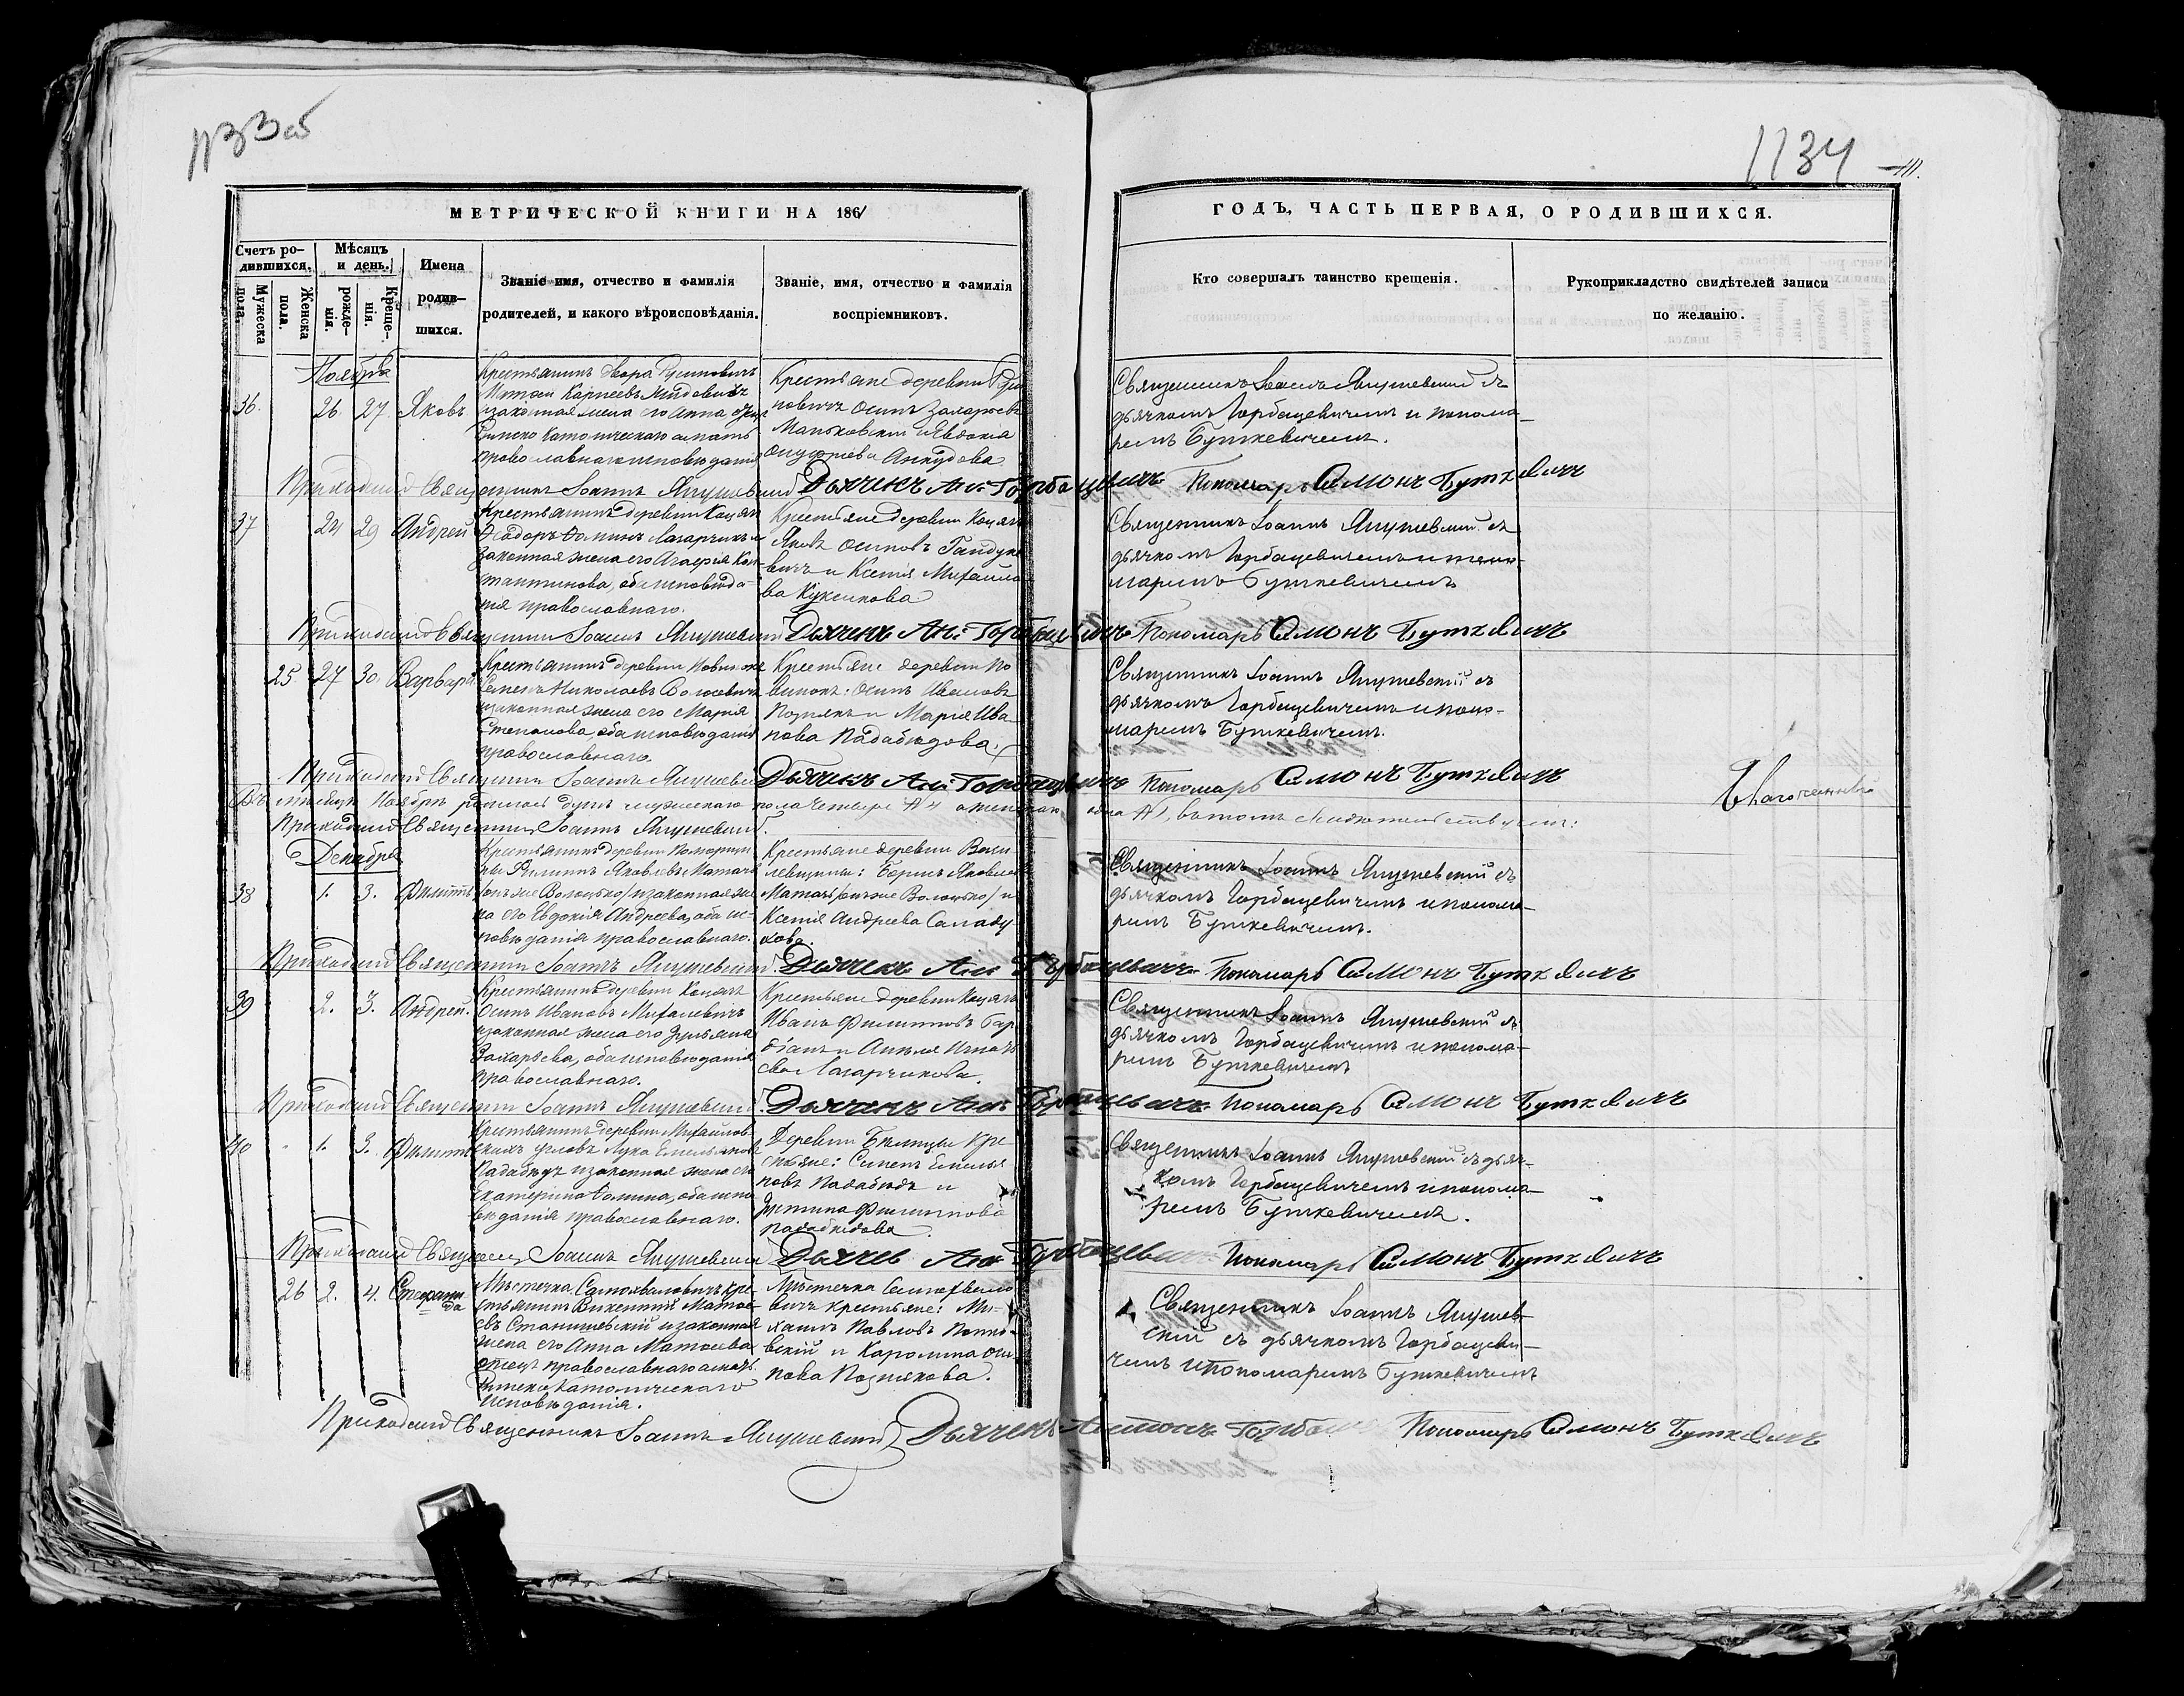 1133 об
1134
МЕТРИЧЕСКОЙ КНИГИ НА 1861
ГОДЪ, ЧАСТЬ ПЕРВАЯ, О РОДИВШИХСЯ.
Счетъ ро-
дившихся.
Мужеска
пола.
Женска
пола.
Мѣсяцъ
и день.
рожде-
нія.
Креще-
нія.
Имена
родив-
шихся.
Званіе имя, отчество и фамилія
родителей, и какого вѣроисповѣданія.
Званіе, имя, отчество и фамилія
воспріемниковъ.
Кто совершалъ таинство крещенія.
Рукоприкладство свидѣтелей записи
по желанію.
Ноября
36. 26 27. Яковъ
Крестьянинъ двора
законная жена его Анна
Римско Католическаго а мать
православнаго исповѣданія
Крестьяне деревни
Осипъ Захарьевъ
Маньковскій и Евдокія
Онуфріева
Священникъ Іоаннъ Янушевскій съ
дьячкомъ Горбацевичемъ и понома-
ремъ Буткевичемъ.
Приходскій Священникъ Іоаннъ Янушевскій Дьячекъ Ан: Горбацевичъ Пономарь Симонъ Буткевичъ
37 24 29 Андрей
Крестьянинъ деревни
Ѳеодоръ Ѳоминъ Лагарчикъ и
законная жена его Агафія Кон-
стантинова, оба исповѣда-
нія православнаго.
Крестьяне деревни
Яковъ Осиповъ Гайдуке
вичъ и Ксенія Михайло
ва Куксикова
Священникъ Іоаннъ Янушевскій съ
дьячкомъ Горбацевичемъ и поно-
маремъ Буткевичемъ
Приходскій Священникъ Іоаннъ Янушевскій Дьячекъ Ан: Горбацевичъ Пономарь Симонъ Буткевичъ
25. 27 30. Варвара
Крестьянинъ деревни
Семенъ Николаевъ
и законная жена его Марія
Степанова, оба исповѣданія
православнаго.
Крестьяне деревни По
Осипъ Ивановъ
Познякъ и Марія Ива
нова Падабѣдова.
Священникъ Іоаннъ Янушевскій съ
дьячкомъ Горбацевичемъ и поно-
маремъ Буткевичемъ.
Приходскій Священникъ Іоаннъ Янушевскій Дьячекъ Ан: Горбацевичъ Пономарь Симонъ Буткевичъ
Въ мѣсяцѣ Ноябрѣ родилось душъ мужескаго пола четыре № 4 а женскаго одна № 1, въ томъ свидѣтельствуемъ:
Приходскій Священникъ Іоаннъ Янушевскій.
Благочинный
Декабря
38 1. 3. Филиппъ
Крестьянинъ деревни
Филиппъ Яковлевъ
и законная же
на его Евдокія Андреева, оба ис-
повѣданія православнаго.
Крестьяне деревни
Борисъ Яковлевъ
Ксенія Андреева Саладу
хова.
Священникъ Іоаннъ Янушевскій съ
дьячкомъ Горбацевичемъ и понома-
ремъ Буткевичемъ.
Приходскій Священникъ Іоаннъ Янушевскій. Дьячекъ Ан: Горбацевичъ Пономарь Симонъ Буткевичъ
39 2. 3. Андрей.
Крестьянинъ деревни
Осипъ Ивановъ Михалевичъ
и законная жена его Ульяна
Захарьева, оба исповѣданія
православнаго.
Крестьяне деревни
Иванъ Филипповъ
Лагарчикова.
Священникъ Іоаннъ Янушевскій съ
дьячкомъ Горбацевичемъ и понома-
ремъ Буткевичемъ
Приходскій Священникъ Іоаннъ Янушевскій. Дьячекъ Ан: Горбацевичъ Пономарь Симонъ Буткевичъ
40 1. 3. Филиппъ
Крестьянинъ деревни
Лука Емельяновъ
Падабѣдъ и законная жена его
Екатерина Ѳомина, оба испо
вѣданія православнаго.
Деревни кре
стьяне: Емелья
новъ Падабѣдъ и
Филиппова
Падабѣдова.
Священникъ Іоаннъ Янушевскій съ дьяч-
комъ Горбацевичемъ и понома-
ремъ Буткевичемъ.
Приходскій Священникъ Іоаннъ Янушевскій Дьячекъ Ан: Горбацевичъ Пономарь Симонъ Буткевичъ
26 2. 4. Стефани
да
Мѣстечка Самохваловичъ кре-
стьянинъ Викентій Матѳе-
евъ Станишевскій и законная
жена его Анна Матѳеева
отецъ православнаго а мать
Римско Католическаго
Исповѣданія.
Мѣстечка Самохвало
вичъ крестьяне: Ми-
хаилъ Павловъ
вскій и Каролина Оси
пова Познякова.
Священникъ Іоаннъ Янушев-
скій съ дьячкомъ Горбацеви-
чемъ и пономаремъ Буткевичемъ
Приходскій Священникъ Іоаннъ Янушевскій Дьячекъ Антонъ Пономарь Симонъ Буткевичъ